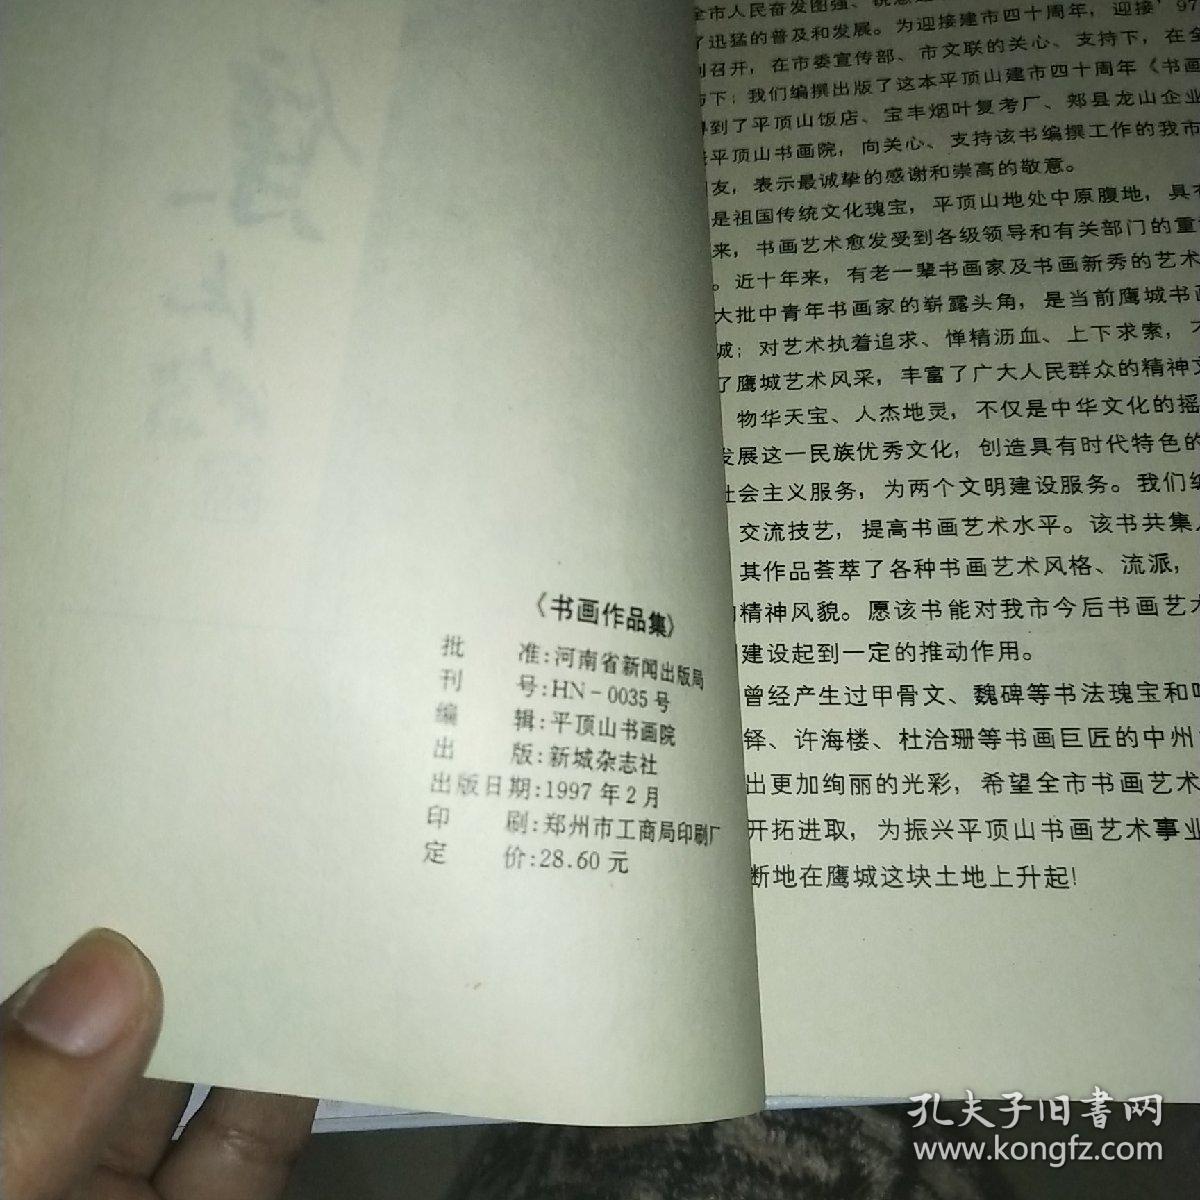 《书画作品集》
批 准:河南省新闻出版局
刊 号:HN-0035号
编 辑:平顶山书画院
出 版:新城杂志社
出版日期:1997年2月
印 刷:郑州市工商局印刷厂
定 价:28.60元
全市人民奋发图强、
迅猛的普及和发展。为迎接建市四十周年，迎接'97
召开，在市委宣传部、市文联的关心、支持下，在全
下；我们编撰出版了这本平顶山建市四十周年《书画
得到了平顶山饭店、宝丰烟叶复考厂、郏县龙山企业
平顶山书画院，向关心、支持该书编撰工作的我市
友，表示最诚挚的感谢和崇高的敬意。
是祖国传统文化瑰宝，平顶山地处中原腹地，具有
来，书画艺术愈发受到各级领导和有关部门的重
。近十年来，有老一辈书画家及书画新秀的艺术
大批中青年书画家的崭露头角，是当前鹰城书画
诚；对艺术执着追求、惮精沥血、上下求索，
了鹰城艺术风采，丰富了广大人民群众的精神文
物华天宝、人杰地灵，不仅是中华文化的摇
发展这一民族优秀文化，创造具有时代特色的
社会主义服务，为两个文明建设服务。我们编
交流技艺，提高书画艺术水平。该书共集
其作品荟萃了各种书画艺术风格、流派，
精神风貌。愿该书能对我市今后书画艺术
建设起到一定的推动作用。
曾经产生过甲骨文、魏碑等书法瑰宝和
铎、许海楼、杜洽珊等书画巨匠的中州
出更加绚丽的光彩，希望全市书画艺术
开拓进取，为振兴平顶山书画艺术事业
断地在鹰城这块土地上升起!
孔夫子旧书网
www.kongfz.com